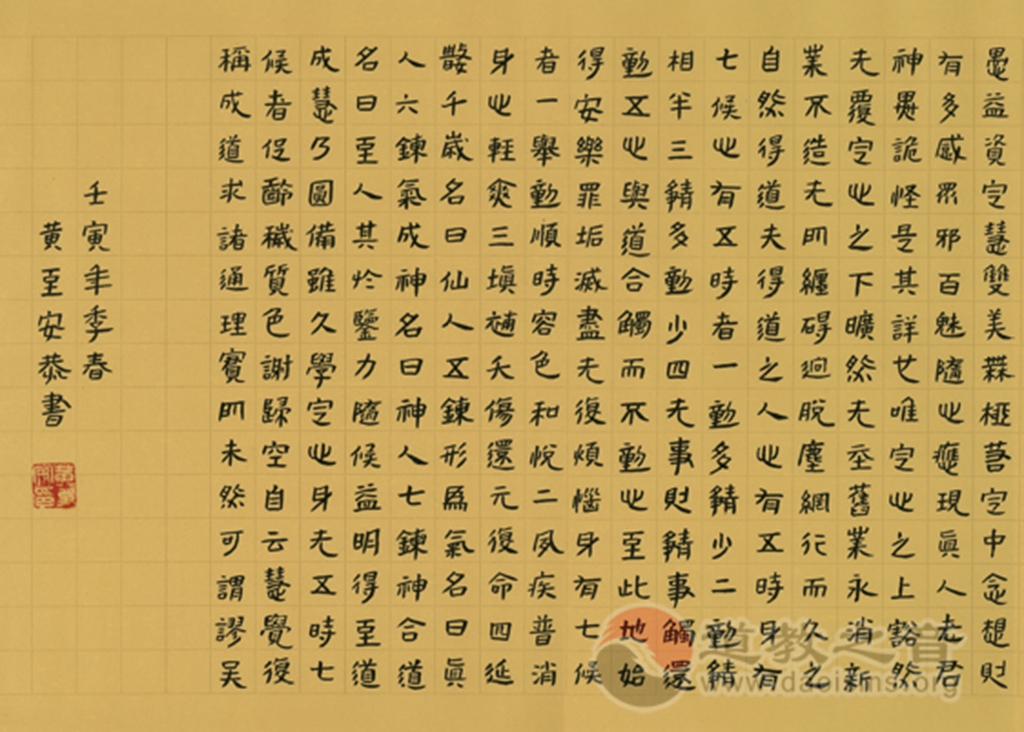 愚益資定慧雙美無極若定中念想則
有多感眾邪百魅隨心應現真人老君
神異詭怪是其詳也唯定心之上豁然
无覆定心之下曠然无丕舊業永消新
業不造无所纏碍迥脫塵網行而久之
自然得道夫得道之人心有五時身有
七候心有五時者一動多靜少二動靜
相半三靜多動少四无事則靜事觸還
動五心與道合觸而不動心至此地始
得安樂罪垢滅盡无復煩惱身有七候
者一舉動順時容色和悅二夙疾普消
身心輕爽三填補夭傷還元復命四延
數千歲名曰仙人五鍊形為氣名曰真
人六鍊氣成神名曰神人七鍊神合道
名曰至人其於鑒力隨候益明得至道
成慧乃圓備雖久學定心身无五時七
候者促齡穢質色謝歸空自云慧覺復
稱成道求諸通理實所未然可謂謬矣
壬寅年季春
黃至安恭書
道教之音
www.daoisms.org